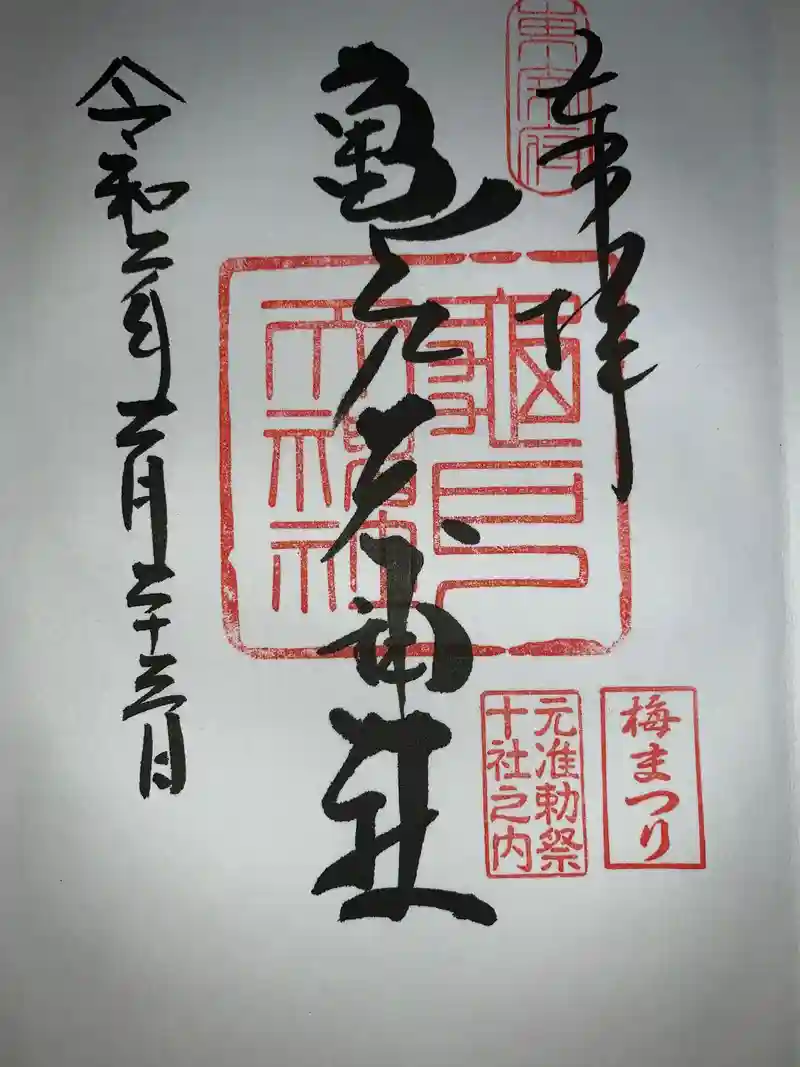 奉拝
東宰府
亀戸天神社
梅まつり
元准勅祭
十社之内
令和二年二月二十三日